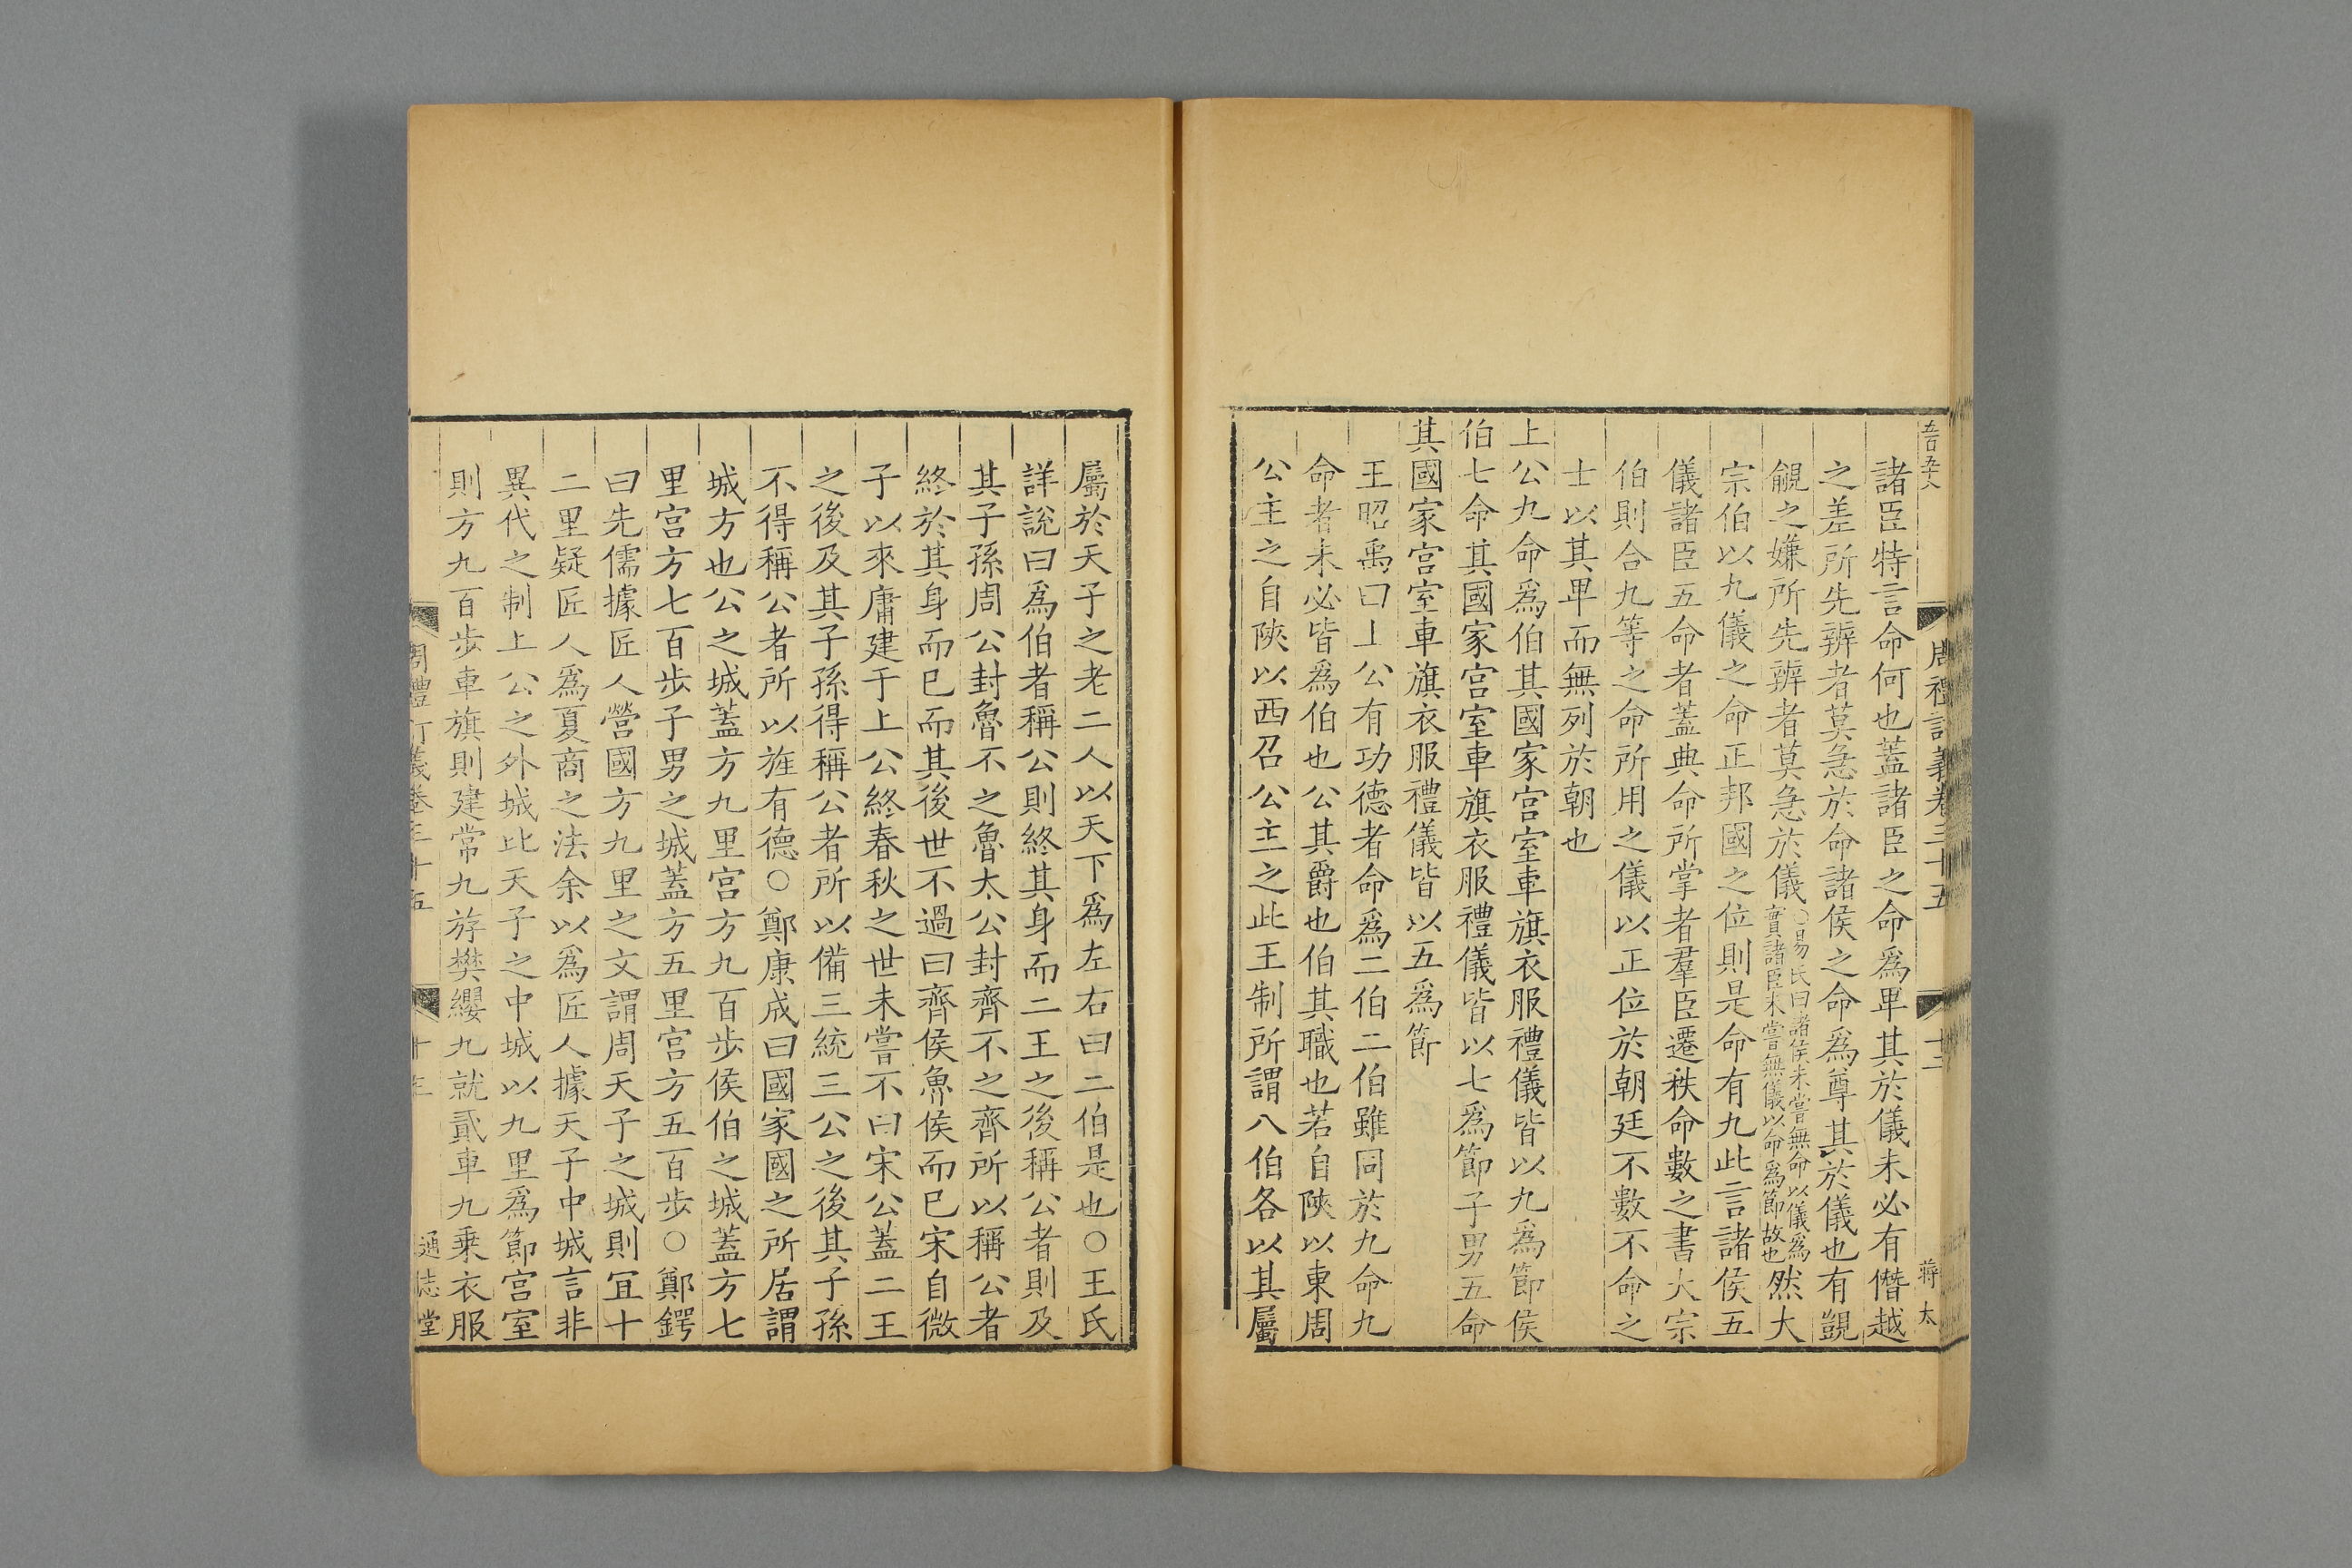 五百五十八
周禮訂義卷三十五
十二
蔣太
諸臣特言命何也蓋諸臣之命爲卑其於儀未必有僭越
之差所先辨者莫急於命諸侯之命爲尊其於儀也有覬
覦之嫌所先辨者莫急於儀○易氏曰諸侯未嘗無命以儀爲實諸臣未嘗無儀以命爲節故也然大
宗伯以九儀之命正邦國之位則是命有九此言諸侯五
儀諸臣五命者蓋典命所掌者羣臣遷秩命數之書大宗
伯則合九等之命所用之儀以正位於朝廷不數不命之
士以其卑而無列於朝也
上公九命爲伯其國家宮室車旗衣服禮儀皆以九爲節侯
伯七命其國家宮室車旗衣服禮儀皆以七爲節子男五命
其國家宮室車旗衣服禮儀皆以五爲節
王昭禹曰上公有功德者命爲二伯二伯雖同於九命九
命者未必皆爲伯也公其爵也伯其職也若自陝以東周
公主之自陝以西召公主之此王制所謂八伯各以其屬
屬於天子之老二人以天下爲左右曰二伯是也○王氏
詳說曰爲伯者稱公則終其身而二王之後稱公者則及
其子孫周公封魯不之魯太公封齊不之齊所以稱公者
終於其身而已而其後世不過曰齊侯魯侯而已宋自微
子以來庸建于上公終春秋之世未嘗不曰宋公蓋二王
之後及其子孫得稱公者所以備三統三公之後其子孫
不得稱公者所以旌有德○鄭康成曰國家國之所居謂
城方也公之城蓋方九里宮方九百步侯伯之城蓋方七
里宮方七百步子男之城蓋方五里宮方五百步○鄭鍔
曰先儒據匠人營國方九里之文謂周天子之城則宜十
二里疑匠人爲夏商之法余以爲匠人據天子中城言非
異代之制上公之外城比天子之中城以九里爲節宮室
則方九百步車旗則建常九斿樊纓九就貳車九乘衣服
周禮訂義卷三十五
通志堂